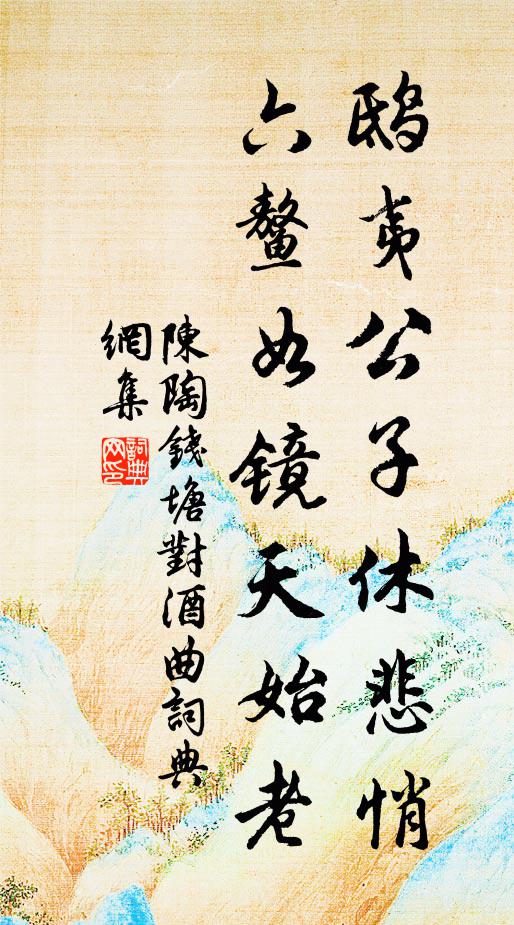 鴟夷公子休悲悄
六鳌如镜天始老
陳陶錢塘對酒曲詞典
網集
詞典
网印